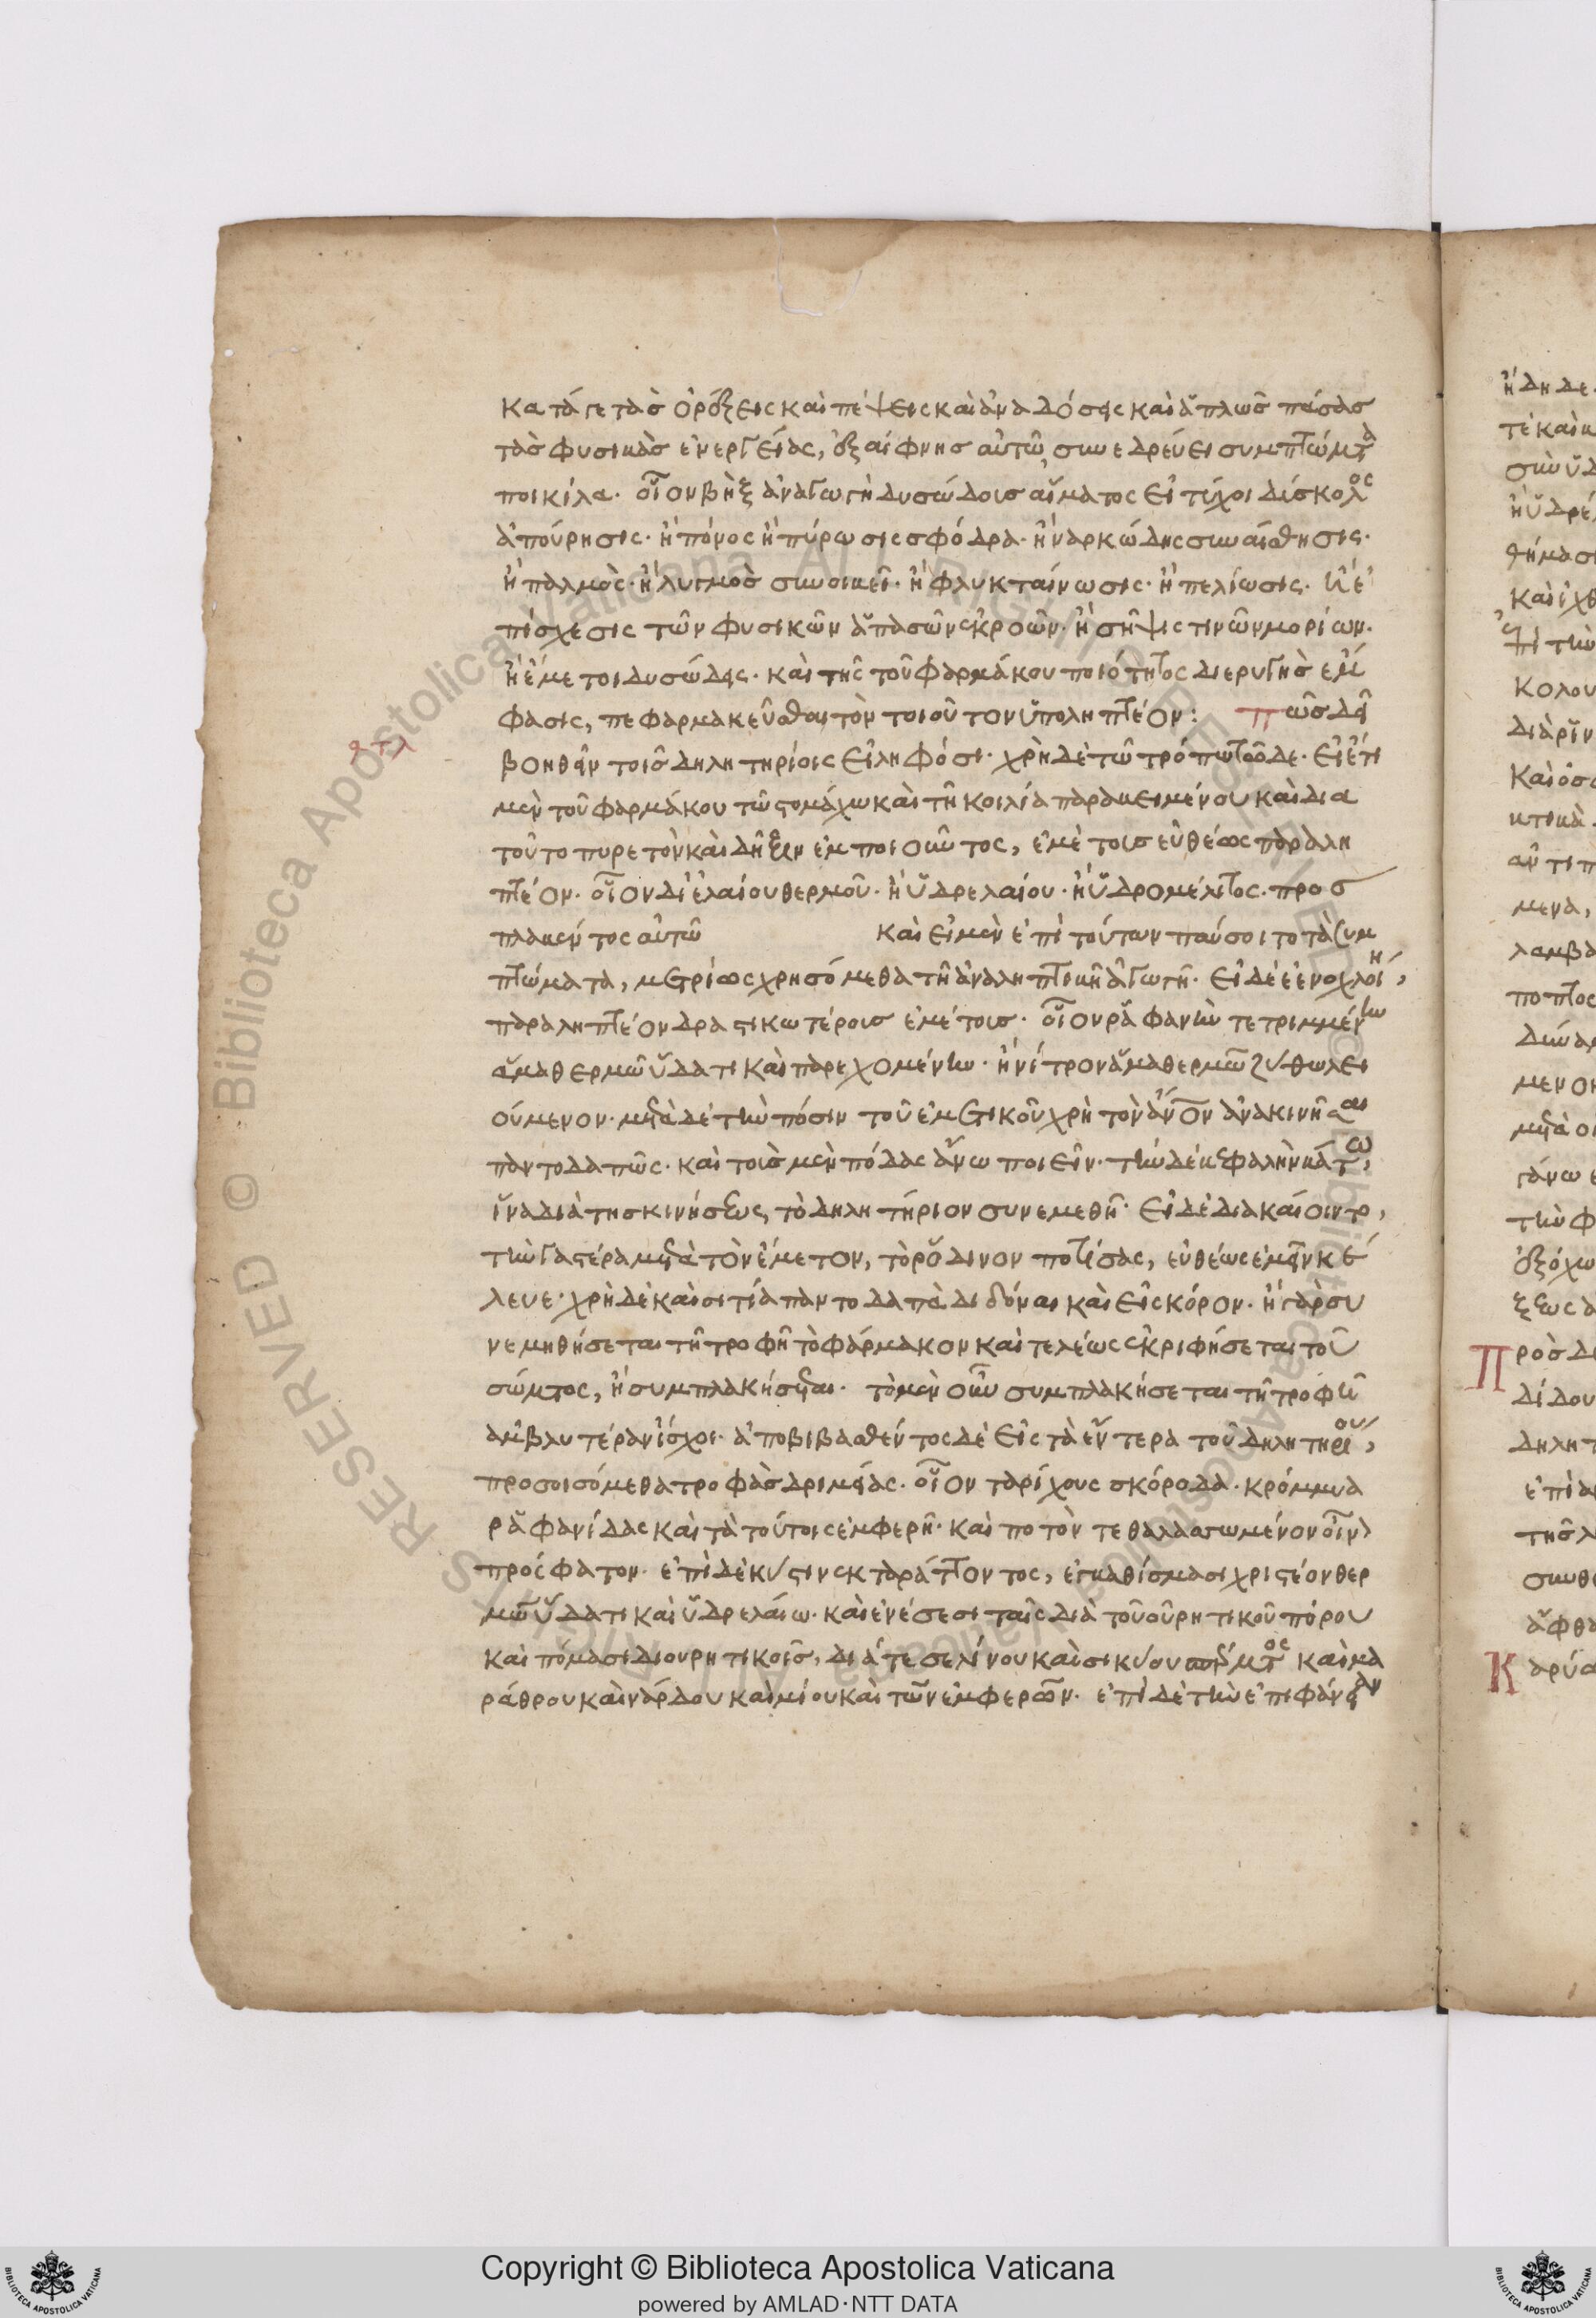 κατά γε τὰς ὀρέξεις καὶ πέψεις καὶ ἀναδόσεις καὶ ἁπλῶς πάσας
τὰς φυσικὰς ἐνεργείας, ἐξαίφνης αὐτῶ συνεδρεύει συμπτώμτα
ποικίλα· οἷον βὴξ ἀναγωγὴ δυσώδους αἵματος εἰ τύχοι δύσκολος
ἀπούρησις· ἢ πόνος ἢ πύρωσις σφόδρα· ἢ ναρκώδης συναίσθησις·
ἢ παλμὸς· ἢ λυγμὸς συνοικεῖ· ἢ φλυκταίνωσις· ἢ πελίωσις· ἢ ἐ
πίσχεσις τῶν φυσικῶν ἁπασῶν ἐκροῶν· ἢ σῆψις τινῶν μορίων·
ἢ ἔμετοι δυσώδεις· καὶ τῆς τοῦ φαρμάκου ποιότητος διερυγῆς ἐμ
φασις, πεφαρμακεῦσθαι τὸν τοιοῦτον ὑποληπτέον: Πῶς δεῖ
βοηθεῖν τοῖς δηλητηρίοις εἰληφόσι· χρὴ δὲ τῶ τρόπω τῶδε· εἰ ἔτι
μὲν τοῦ φαρμάκου τῶ στομάχω καὶ τῆ κοιλία παρακειμένου καὶ δια
τοῦτο πυρετὸν καὶ δῆξιν ἐμποιοῦντος, ἐμέτοις εὐθέως παραλη
πτέον· οἷον δι' ἐλαίου θερμοῦ· ἢ ὑδρελαίου· ἢ ὑδρομέλιτος· προσ
πλακέντος αὐτῶ καὶ εἰ μὲν ἐπὶ τούτων παύσοιτο τὰ συμ
πτώματα, μετρίως χρησόμεθα τῆ ἀναληπτικῆ ἀγωγῆ· εἰ δὲ ἐνοχλοίη,
παραληπτέον δραστικωτέροις ἐμέτοις· οἷον ῥαφανὶν τετριμμένην
ἅμα θερμῶ ὕδατι καὶ παρεχομένην· ἢ νίτρον ἅμα θερμῶ ζύθω λει
ούμενον· μετὰ δὲ τὴν πόσιν τοῦ ἐμετικοῦ χρὴ τὸν ἄνον ἀνακινῆσαι
παντοδαπῶς· καὶ τοὺς μὲν πόδας ἄνω ποιεῖν· τὴν δὲ κεφαλὴν κάτω,
ἵνα διὰ τῆς κινήσεως, τὸ δηλητήριον συνεμεθῆ· εἰ δὲ διακαίοιντο,
τὴν γαστέρα μετὰ τὸν ἔμετον, τὸ ῥόδινον ποτίσας, εὐθέως ἐμεῖν κέ
λευε· χρὴ δὲ καὶ σιτία παντοδαπὰ διδόναι καὶ εἰς κόρον· ἢ γὰρ συ
νεμηθήσεται τῆ τροφῆ τὸ φάρμακον καὶ τελέως ἐκριφήσεται τοῦ
σώμτος, ἢ συμπλακήσεται· τὸ μὲν οὖν συμπλακήσεται τῆ τροφῆ
ἀμβλυτέραν ἴσχοι· ἀποβιβασθέντος δὲ εἰς τὰ ἔντερα τοῦ δηλητηρίου,
προσοισόμεθα τροφὰς δριμείας· οἷον ταρίχους σκόροδα· κρόμμυα
ῥαφανίδας καὶ τὰ τούτοις ἐμφερῆ· καὶ ποτὸν τεθαλασσωμένον οἶνον
πρόσφατον· ἐπὶ δὲ κύστιν ἐκταράττοντος, ἐγκαθίσμασι χριστέον θερ
μῶ ὕδατι καὶ ὑδρελαίω· καὶ ἐνέσεσι ταῖς διὰ τοῦ οὐρητικοῦ πόρου
καὶ πόμασι διουρητικοῖς, διά τε σελίνου καὶ σικύου σπέρμτος καὶ μα
ράθρου καὶ νάρδου καὶ μίου καὶ τῶν ἐμφερῶν· ἐπὶ δὲ τὴν ἐπιφάνειαν
Copyright © Biblioteca Apostolica Vaticana
powered by AMLAD·NTT DATA